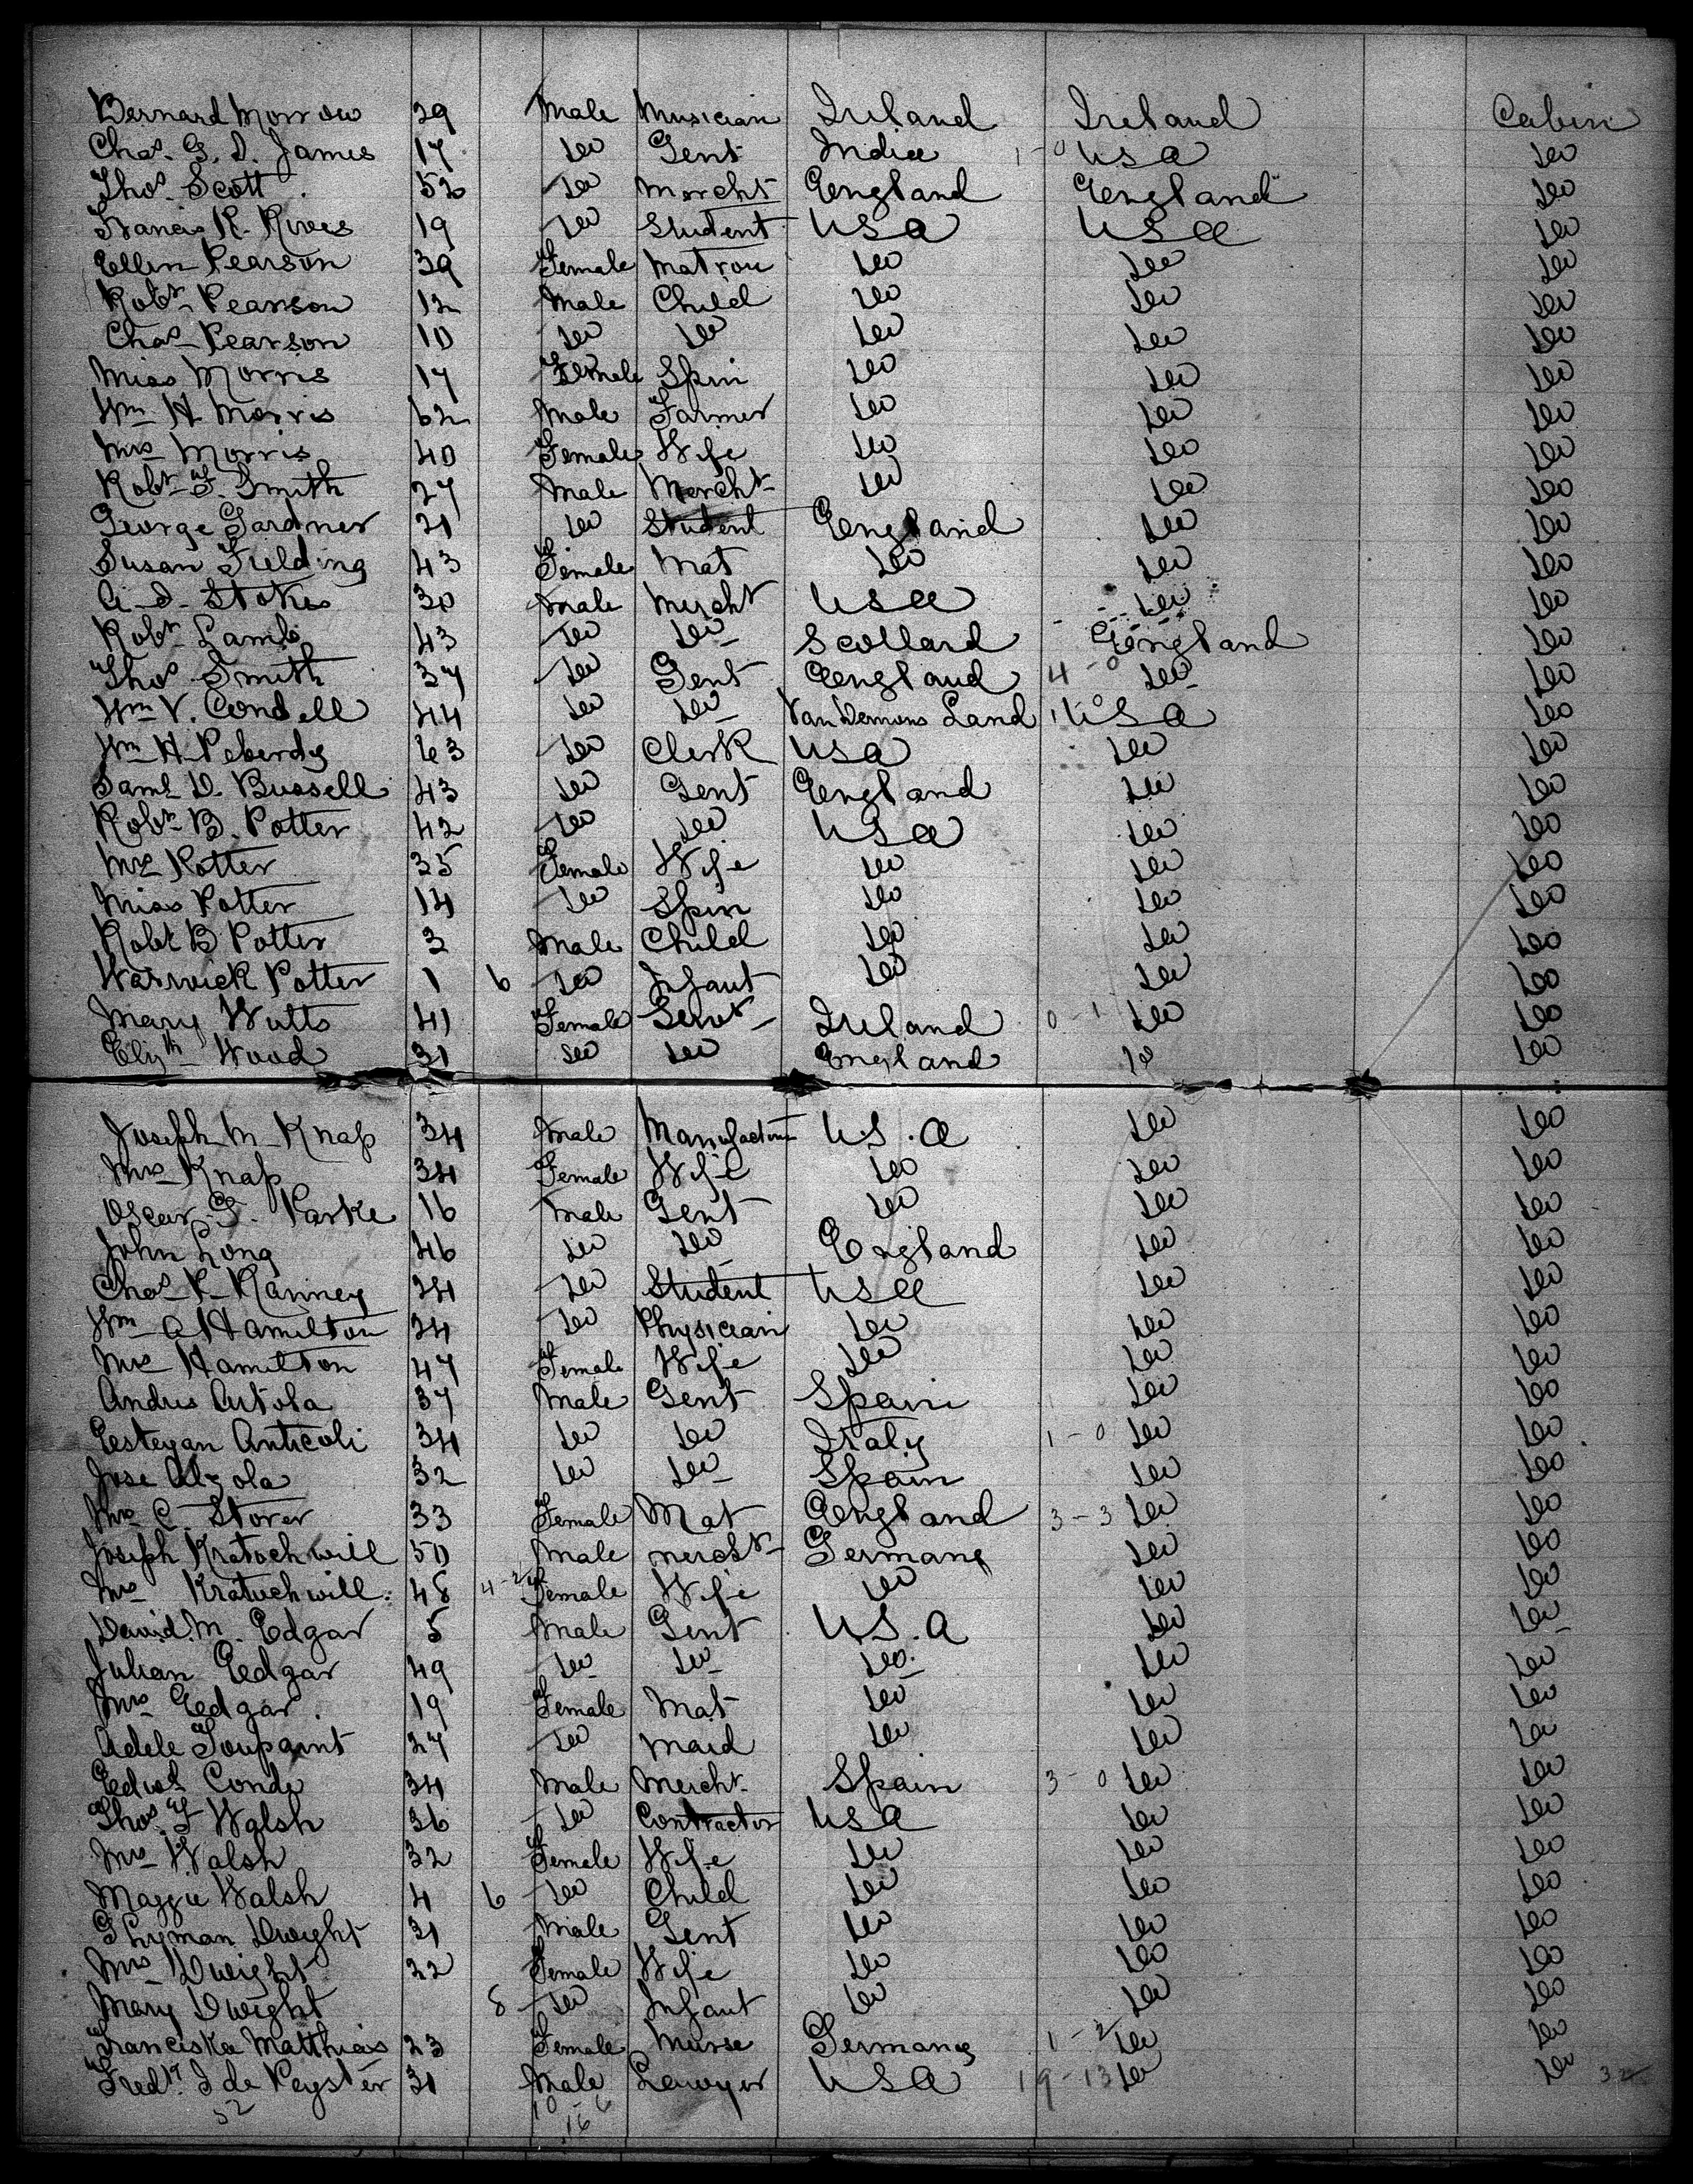 Bernard Morrow 29 Male Musician Ireland Ireland Cabin
Chas. G. D. James 17 Do Gent India 1-0 USA Do
Thos Scott 52 Do Mercht England England Do
Francis R. Rives 19 Do Student USA USA Do
Ellen Pearson 39 Female Matron Do Do Do
Robt Pearson 12 Male Child Do Do Do
Chas Pearson 10 Do Do Do Do Do
Miss Morris 17 Female Spin Do Do Do
Wm H Morris 62 Male Farmer Do Do Do
Mrs Morris 40 Female Wife Do Do Do
Robt F. Smith 27 Male Mercht Do Do Do
George Gardner 21 Do Student England Do Do
Susan Fielding 43 Female Mat Do Do Do
A. D. Stokes 30 Male Mercht USA Do Do
Robt Lamb 43 Do Do Scotland England Do
Thos Smith 37 Do Gent England 4-0 Do Do
Wm V. Condell 44 Do Do Van Demons Land 1 USA Do
Wm H. Peberdy 63 Do Clerk USA Do Do
Saml D. Bussell 43 Do Gent England Do Do
Robt B. Potter 42 Do Do USA Do Do
Mrs Potter 35 Female Wife Do Do Do
Miss Potter 14 Do Spin Do Do Do
Robt B Potter 3 Male Child Do Do Do
Warwick Potter 1 6 Do Infant Do Do Do
Mary Watts 41 Female Servt Ireland 0-1 Do Do
Elizth Wood 31 Do Do England Do Do
Joseph M Knap 34 Male Manufacturer U.S.A Do Do
Mrs Knap 34 Female Wife Do Do Do
Oscar G. Parke 16 Male Gent Do Do Do
John Long 46 Do Do England Do Do
Chas P. Ranney 24 Do Student USA Do Do
Wm A Hamilton 34 Do Physician Do Do Do
Mrs Hamilton 47 Female Wife Do Do Do
Andres Artola 37 Male Gent Spain Do Do
Estevan Anticoli 34 Do Do Italy 1-0 Do Do
Jose Alzola 32 Do Do Spain Do Do
Mrs C. Storer 33 Female Mat England 3-3 Do Do
Joseph Kratochwill 50 Male Mercht Germany Do Do
Mrs Kratuchwill 48 4-2 Female Wife Do Do Do
David M. Edgar 5 Male Gent U.S.A Do Do
Julian Edgar 49 Do Do Do Do Do
Mrs Edgar 19 Female Mat Do Do Do
Adele Toupaint 27 Do Maid Do Do Do
Edwd Conde 34 Male Mercht Spain 3-0 Do Do
Thos F Walsh 36 Do Contractor USA Do Do
Mrs Walsh 32 Female Wife Do Do Do
Maggie Walsh 4 6 Do Child Do Do Do
Lyman Dwight 31 Male Gent Do Do Do
Mrs Dwight 22 Female Wife Do Do Do
Mary Dwight 8 Do Infant Do Do Do
Franciska Matthias 23 Female Nurse Germany 1-2 Do Do
Fredk. J de Peyster 31 Male Lawyer USA 19-13 Do Do
52 10-6
16